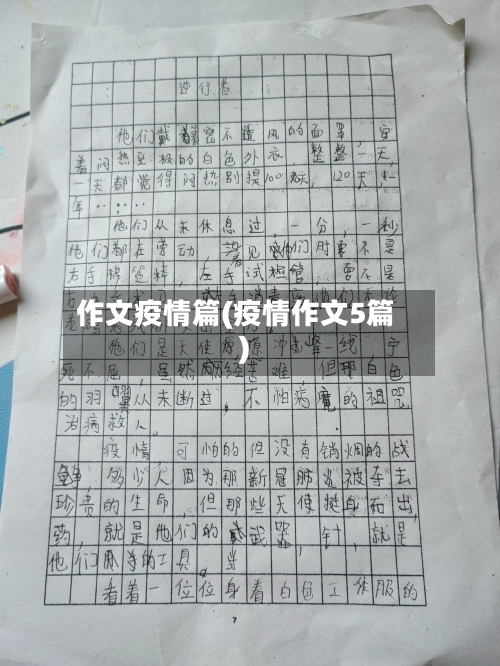 逆行者
他们戴着密不透风的面罩，穿
着闷热至极的白色外衣，整整一天，
一天都觉得闷热别提100天，120天，一
年……
他们从未休息过，一分，一秒
他们都在劳动，见他们时要不是
右手棉签，左手试管，要不是
作文疫情篇(疫情作文5篇
)
他们是天使冲一线，宁
死不屈，虽然苦难但那白色
的羽翼从未断过，不怕病魔的诅咒，
治病救人。
疫情可怕的但没有销烟的战
，多少人因为那新冠肺炎被夺去
珍贵的生命，但那些天使挺身而出，
药，就是他们的武器，针，就是
他们的工具，
看着一位位身着白色工作服的
7